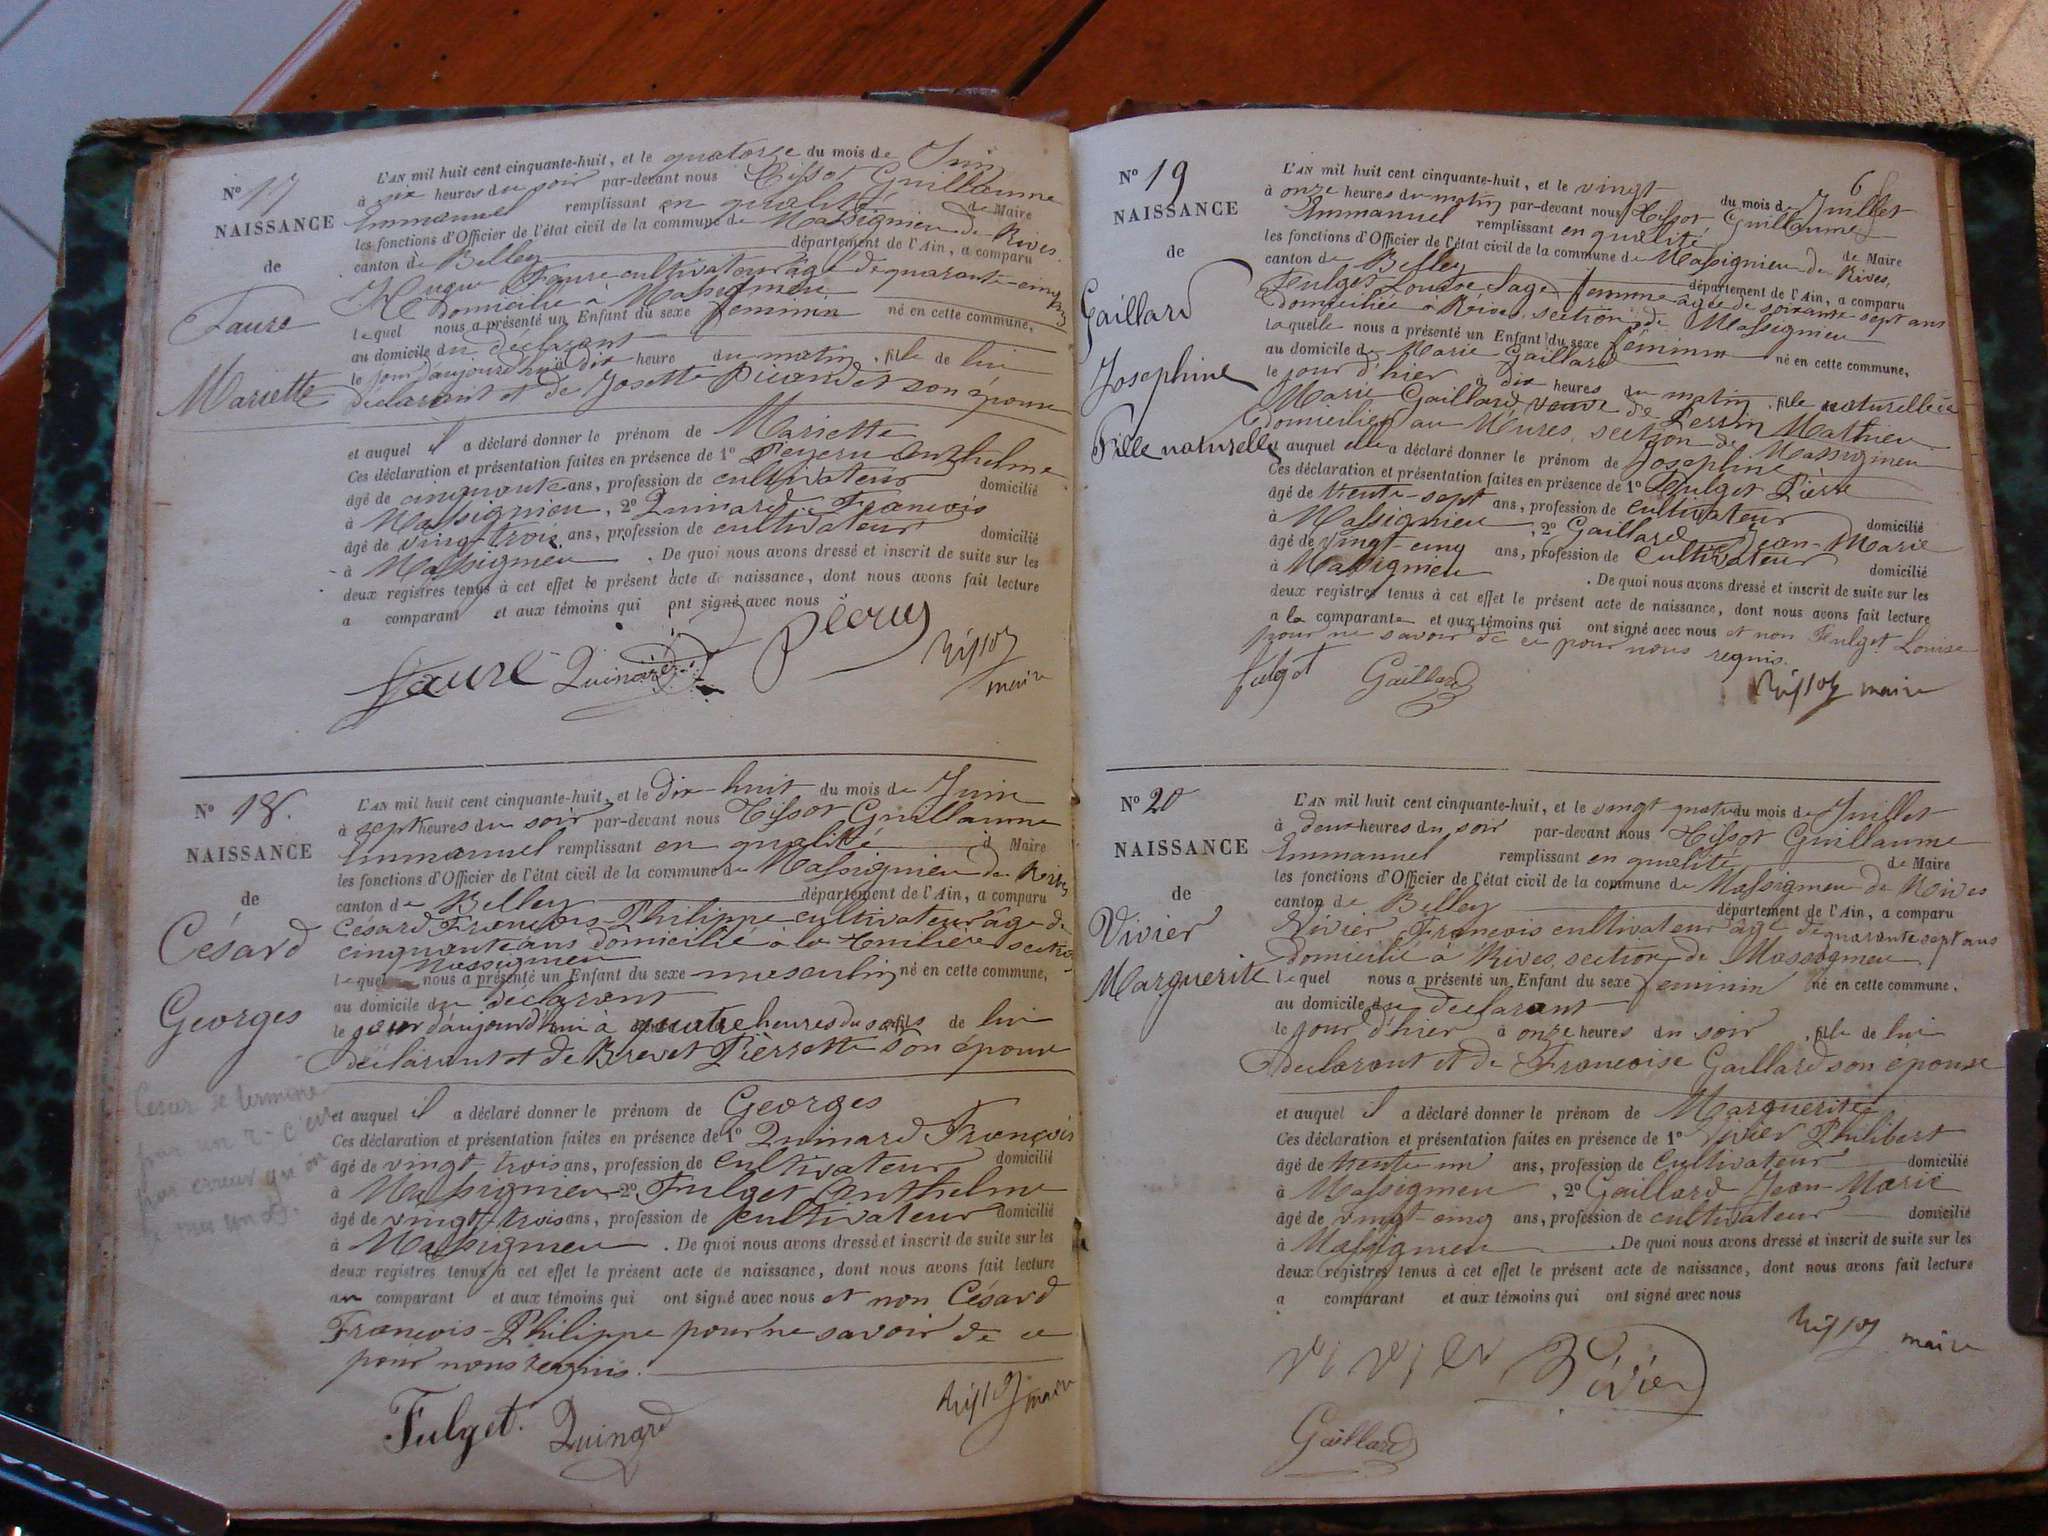 N° 17
NAISSANCE
de
Faure
Mariette
L'AN mil huit cent cinquante-huit, et le quatorze du mois de Juin
à six heures du soir par-devant nous Tissot Guillaume
Emmanuel remplissant en qualité de Maire
les fonctions d'Officier de l'état civil de la commune de Massignieu de Rives,
canton de Belley département de l'Ain, a comparu
Hugue Faure cultivateur âgé de quarante-cinq ans
domicilié à Massignieu
lequel nous a présenté un Enfant du sexe feminin né en cette commune,
au domicile du déclarant
le jour d'aujourd'hui à dix heure du matin, fille de lui
déclarant et de Josette Picard et son épouse
et auquel il a déclaré donner le prénom de Mariette
Ces déclaration et présentation faites en présence de 1° Anthelme
âgé de cinquante ans, profession de cultivateur domicilié
à Massignieu, 2° Quinard François
âgé de vingt-trois ans, profession de cultivateur domicilié
à Massignieu. De quoi nous avons dressé et inscrit de suite sur les
deux registres tenus à cet effet le présent acte de naissance, dont nous avons fait lecture
a comparant et aux témoins qui ont signé avec nous
Faure Quinard Tissot
maire
N° 18.
NAISSANCE
de
Césard
Georges
Cesar se termine
par un r - c'est
par erreur qu'on
a mis un d.
L'AN mil huit cent cinquante-huit, et le dix-huit du mois de Juin
à sept heures du soir par-devant nous Tissot Guillaume
Emmanuel remplissant en qualité d Maire
les fonctions d'Officier de l'état civil de la commune de Massignieu de Rives
canton de Belley département de l'Ain, a comparu
Césard François-Philippe cultivateur âgé de
cinquante ans domicilié à la section
Massignieu
lequel nous a présenté un Enfant du sexe masculin né en cette commune,
au domicile du déclarant
le jour d'aujourd'hui à quatre heures du soir fils de lui
déclarant et de Brevet Pierrette son épouse
et auquel il a déclaré donner le prénom de Georges
Ces déclaration et présentation faites en présence de 1° Quinard François
âgé de vingt-trois ans, profession de cultivateur domicilié
à Massignieu 2° Fulget Anthelme
âgé de vingt-trois ans, profession de cultivateur domicilié
à Massignieu. De quoi nous avons dressé et inscrit de suite sur les
deux registres tenus à cet effet le présent acte de naissance, dont nous avons fait lecture
au comparant et aux témoins qui ont signé avec nous et non Césard
François-Philippe pour ne savoir de ce
pour nous requis.
Fulget. Quinard Tissot maire
6
N° 19
NAISSANCE
de
Gaillard
Josephine
Fille naturelle
L'AN mil huit cent cinquante-huit, et le vingt du mois de Juillet
à onze heures du matin par-devant nous Tissot Guillaume
Emmanuel remplissant en qualité de Maire
les fonctions d'Officier de l'état civil de la commune de Massignieu de Rives,
canton de Belley département de l'Ain, a comparu
Fulget Louise Sage femme agée de soixante sept ans
domiciliée à Rives, section de Massignieu
laquelle nous a présenté un Enfant du sexe feminin né en cette commune,
au domicile de Marie Gaillard
le jour d'hier à dix heures du matin, fille naturelle de
Marie Gaillard veuve de Perrin Mathieu
domiciliée au Mures, section de Massignieu
auquel elle a déclaré donner le prénom de Josephine
Ces déclaration et présentation faites en présence de 1° Fulget Pierre
âgé de trente-sept ans, profession de cultivateur domicilié
à Massignieu, 2° Gaillard Jean-Marie
âgé de vingt-cinq ans, profession de Cultivateur domicilié
à Massignieu. De quoi nous avons dressé et inscrit de suite sur les
deux registres tenus à cet effet le présent acte de naissance, dont nous avons fait lecture
a la comparante et aux témoins qui ont signé avec nous et non Fulget Louise
pour ne savoir de ce pour nous requis.
fulget Gaillard Tissot maire
N° 20
NAISSANCE
de
Vivier
Marguerite
L'AN mil huit cent cinquante-huit, et le vingt quatre du mois de Juillet
à deux heures du soir par-devant nous Tissot Guillaume
Emmanuel remplissant en qualité de Maire
les fonctions d'Officier de l'état civil de la commune de Massignieu de Rives
canton de Belley département de l'Ain, a comparu
Vivier François cultivateur âgé de quarante sept ans
domicilié à Rives, section de Massignieu
lequel nous a présenté un Enfant du sexe feminin né en cette commune,
au domicile du déclarant
le jour d'hier à onze heures du soir, fille de lui
declarant et de Francoise Gaillard son épouse
et auquel il a déclaré donner le prénom de Marguerite
Ces déclaration et présentation faites en présence de 1° Vivier Philibert
âgé de trente-un ans, profession de cultivateur domicilié
à Massignieu, 2° Gaillard Jean-Marie
âgé de vingt-cinq ans, profession de cultivateur domicilié
à Massignieu. De quoi nous avons dressé et inscrit de suite sur les
deux registres tenus à cet effet le présent acte de naissance, dont nous avons fait lecture
a comparant et aux témoins qui ont signé avec nous
Tissot maire
vivier Vivier
Gaillard